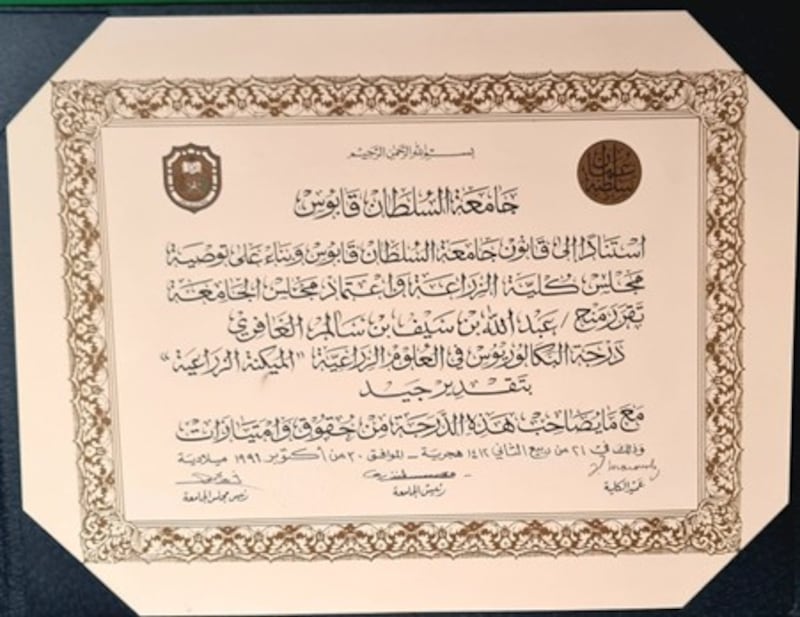 بسم الله الرحمن الرحيم
سلطنة عمان
جامعة السلطان قابوس
استنادا إلى قانون جامعة السلطان قابوس وبناء على توصية
مجلس كلية الزراعة واعتماد مجلس الجامعة
تقرر منح / عبد الله بن سيف بن سالم الغافري
درجة البكالوريوس في العلوم الزراعية "الميكنة الزراعية"
بتقدير جيد
مع ما يصاحب هذه الدرجة من حقوق وامتيازات
وذلك في ٢١ من ربيع الثاني ١٤١٢ هجرية – الموافق ٣٠ من أكتوبر ١٩٩١ ميلادية
عميد الكلية
رئيس الجامعة
رئيس مجلس الجامعة